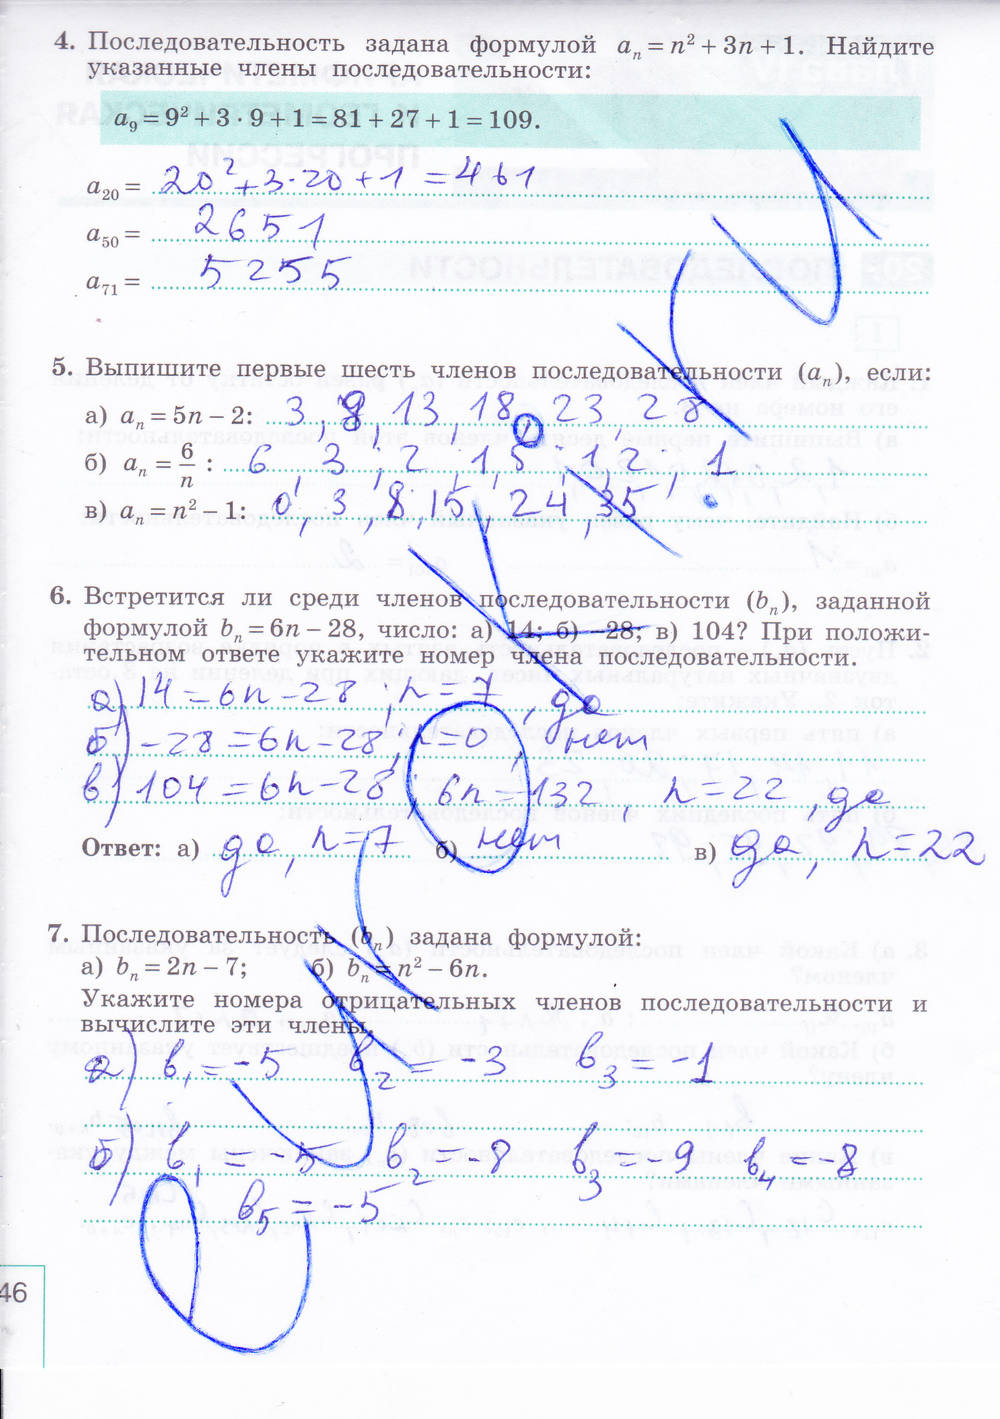 4. Последовательность задана формулой aₙ = n² + 3n + 1. Найдите
указанные члены последовательности:
a₉ = 9² + 3 · 9 + 1 = 81 + 27 + 1 = 109.
a₂₀ = 20² + 3·20 + 1 = 461
a₅₀ = 2651
a₇₁ = 5255
5. Выпишите первые шесть членов последовательности (aₙ), если:
а) aₙ = 5n − 2: 3, 8, 13, 18, 23, 28
б) aₙ = 6/n : 6; 3; 2; 1,5; 1,2; 1
в) aₙ = n² − 1: 0, 3, 8, 15, 24, 35
6. Встретится ли среди членов последовательности (bₙ), заданной
формулой bₙ = 6n − 28, число: а) 14; б) −28; в) 104? При положи-
тельном ответе укажите номер члена последовательности.
а) 14 = 6n − 28; n = 7, да
б) −28 = 6n − 28, n = 0, нет
в) 104 = 6n − 28; 6n = 132, n = 22, да
Ответ: а) да, n = 7 б) нет в) да, n = 22
7. Последовательность (bₙ) задана формулой:
а) bₙ = 2n − 7; б) bₙ = n² − 6n.
Укажите номера отрицательных членов последовательности и
вычислите эти члены.
а) b₁ = −5 b₂ = −3 b₃ = −1
б) b₁ = −5 b₂ = −8 b₃ = −9 b₄ = −8
b₅ = −5
46